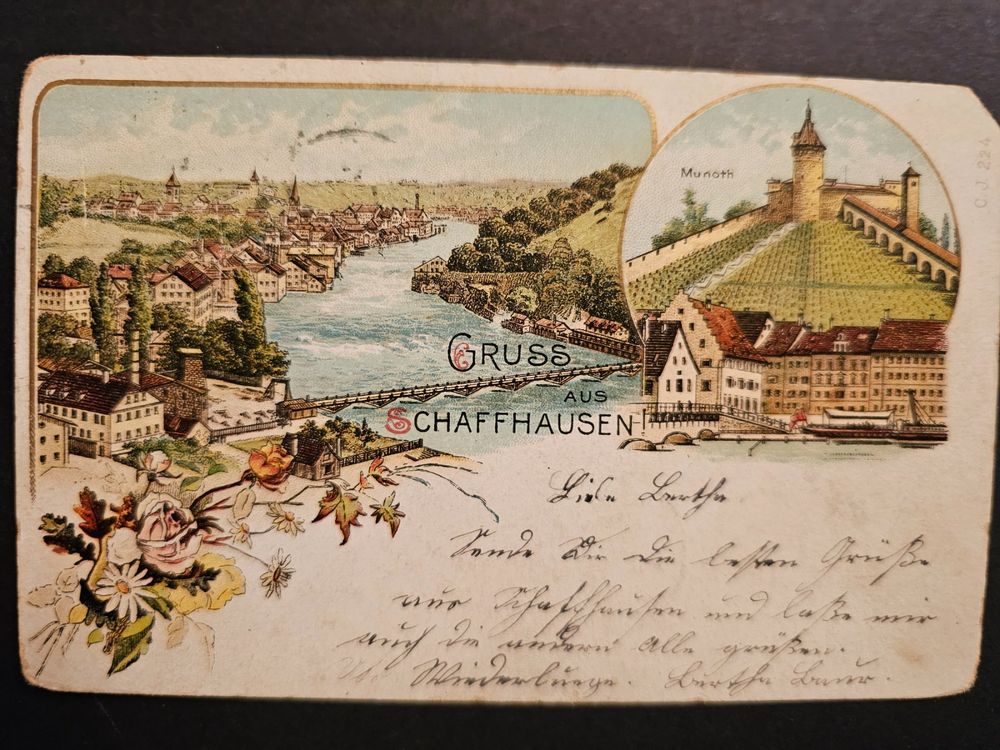 Munoth
C.J. 224
GRUSS
AUS
SCHAFFHAUSEN!
Liebe Bertha
Sende Dir die besten Grüße
aus Schaffhausen und laße mir
auch die andern Alle grüßen.
Wiederluege. Bertha Baur.